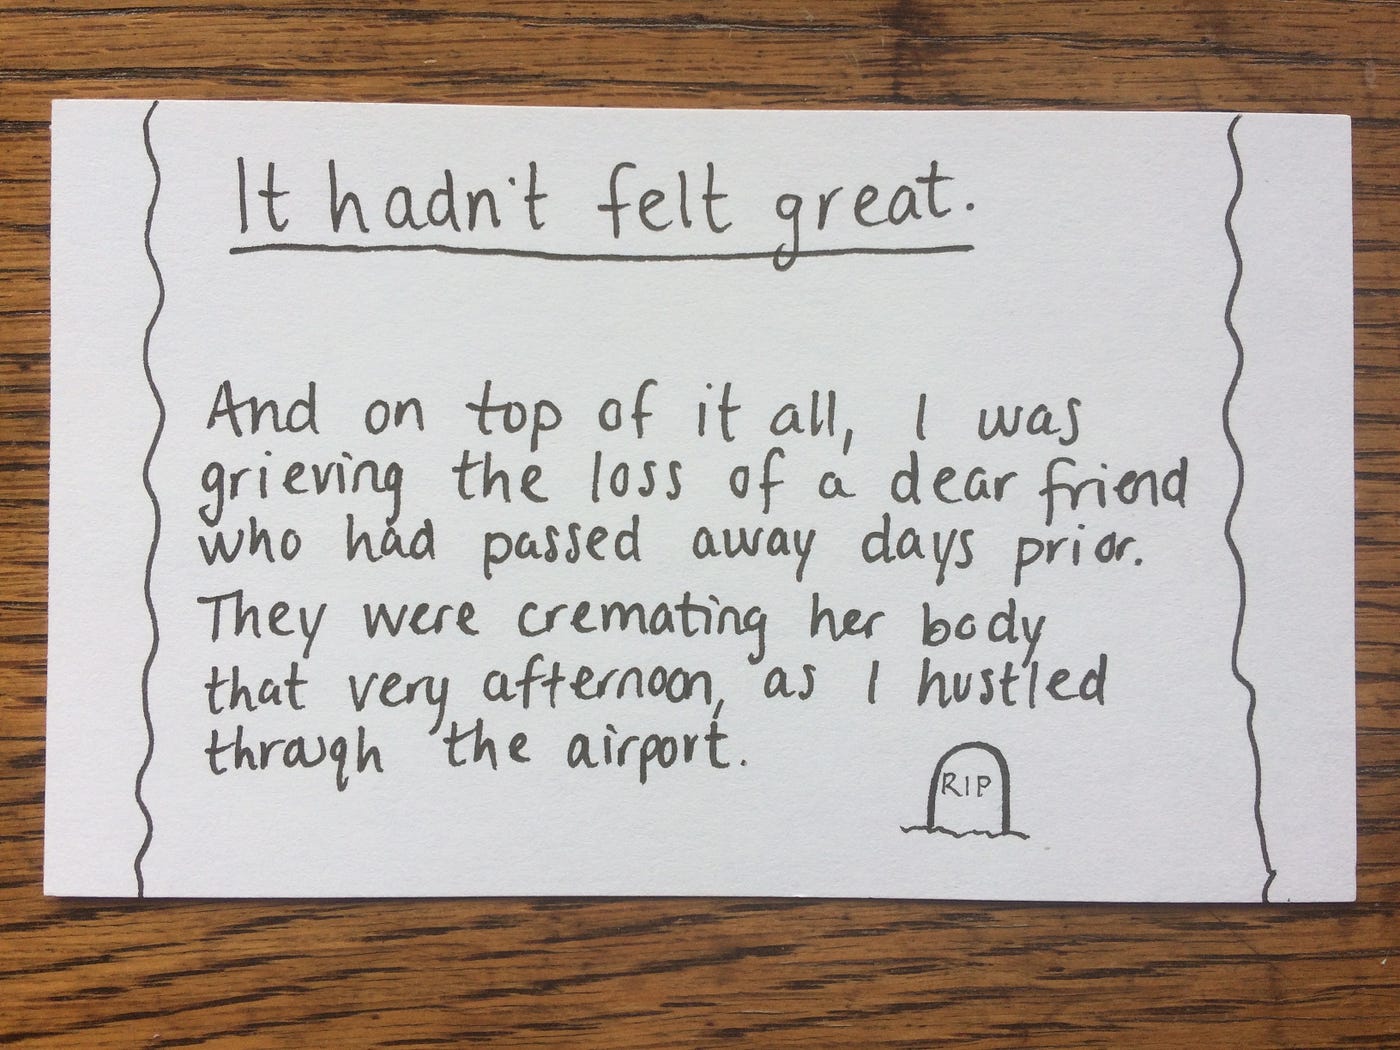 It hadn't felt great.
And on top of it all, I was
grieving the loss of a dear friend
who had passed away days prior.
They were cremating her body
that very afternoon, as I hustled
through the airport.
RIP